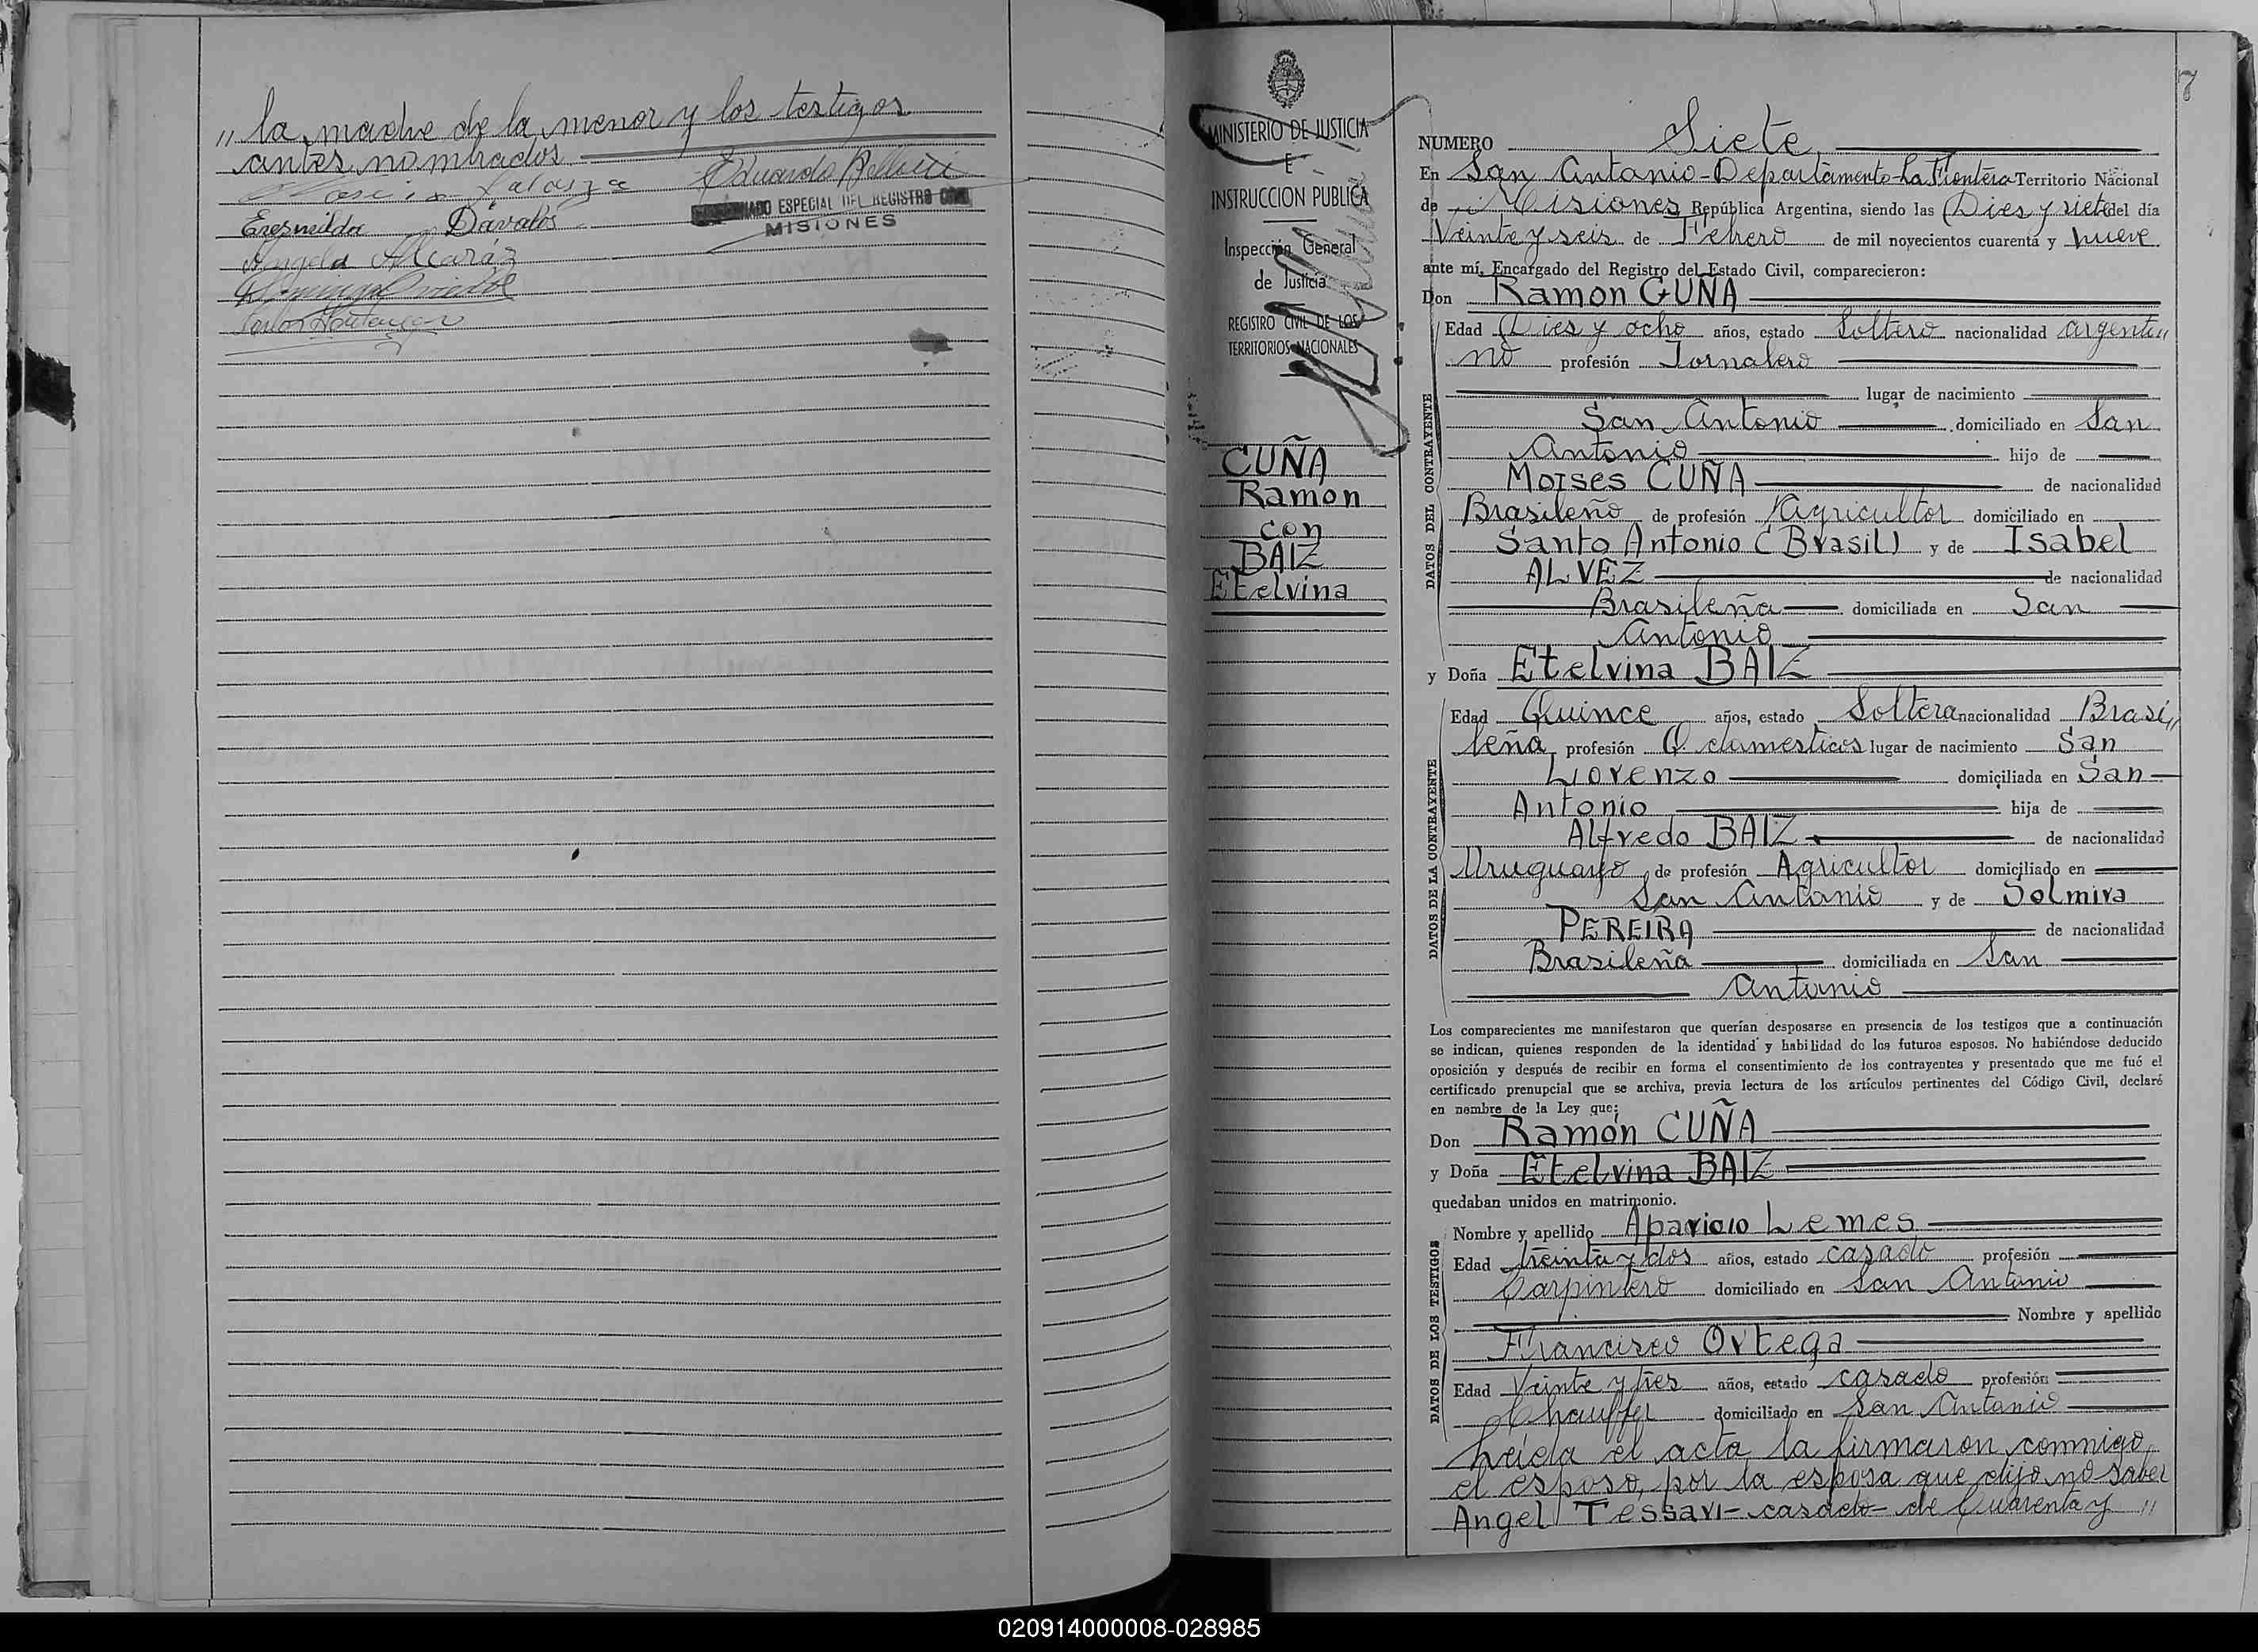 ,, la madre de la menor y los testigos
antes nombrados
Eduardo
ESPECIAL DEL REGISTRO CIVIL
MISIONES
Dávalos
Angela Alcaráz
7
MINISTERIO DE JUSTICIA
E
INSTRUCCION PUBLICA
Inspección General
de Justicia
REGISTRO CIVIL DE LOS
TERRITORIOS NACIONALES
CUÑA
Ramon
con
BAIZ
Etelvina
NUMERO Siete
En San Antonio - Departamento La Frontera Territorio Nacional
de Misiones República Argentina, siendo las Dies y siete del día
Veinte y seis de Febrero de mil novecientos cuarenta y nueve
ante mí, Encargado del Registro del Estado Civil, comparecieron:
Don Ramon CUÑA
DATOS DEL CONTRAYENTE
Edad Dies y ocho años, estado Soltero nacionalidad argenti,,
no profesión Jornalero
lugar de nacimiento
San Antonio domiciliado en San
Antonio hijo de
Moises CUÑA de nacionalidad
Brasileño de profesión Agricultor domiciliado en
Santo Antonio (Brasil) y de Isabel
ALVEZ de nacionalidad
Brasileña domiciliada en San
Antonio
y Doña Etelvina BAIZ
DATOS DE LA CONTRAYENTE
Edad Quince años, estado Soltera nacionalidad Brasi,,
leña profesión Q. domesticos lugar de nacimiento San
Lorenzo domiciliada en San
Antonio hija de
Alfredo BAIZ de nacionalidad
Uruguayo de profesión Agricultor domiciliado en
San Antonio y de Solmira
PEREIRA de nacionalidad
Brasileña domiciliada en San
Antonio
Los comparecientes me manifestaron que querían desposarse en presencia de los testigos que a continuación
se indican, quienes responden de la identidad y habilidad de los futuros esposos. No habiéndose deducido
oposición y después de recibir en forma el consentimiento de los contrayentes y presentado que me fué el
certificado prenupcial que se archiva, previa lectura de los artículos pertinentes del Código Civil, declaré
en nombre de la Ley que:
Don Ramón CUÑA
y Doña Etelvina BAIZ
quedaban unidos en matrimonio.
DATOS DE LOS TESTIGOS
Nombre y apellido Aparicio Lemes
Edad treinta y dos años, estado casado profesión
Carpintero domiciliado en San Antonio
Nombre y apellido
Francisco Ortega
Edad Veinte y tres años, estado casado profesión
Chauffer domiciliado en San Antonio
Leida el acta la firmaron conmigo
el esposo, por la esposa que dijo no saber
Angel Tessari - casado - de Cuarenta y ,,
020914000008-028985